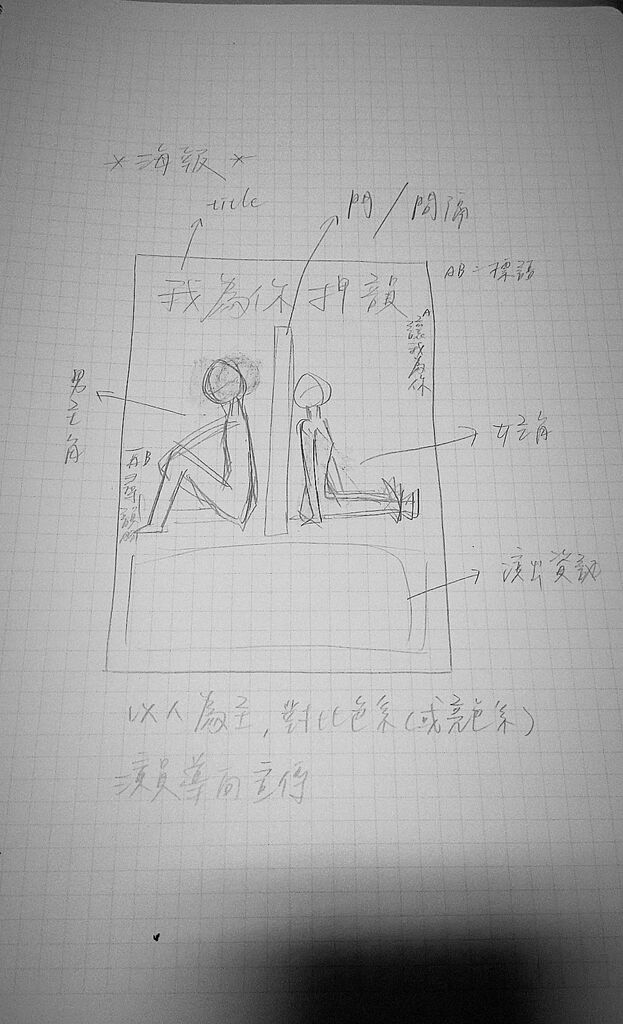 * 海報 *
title
門/間隔
AB=標語
我為你押韻
A
讓我為你
男主角
B
再
女主角
演出資訊
以人為主,對比色系(或亮色系)
演員導向宣傳